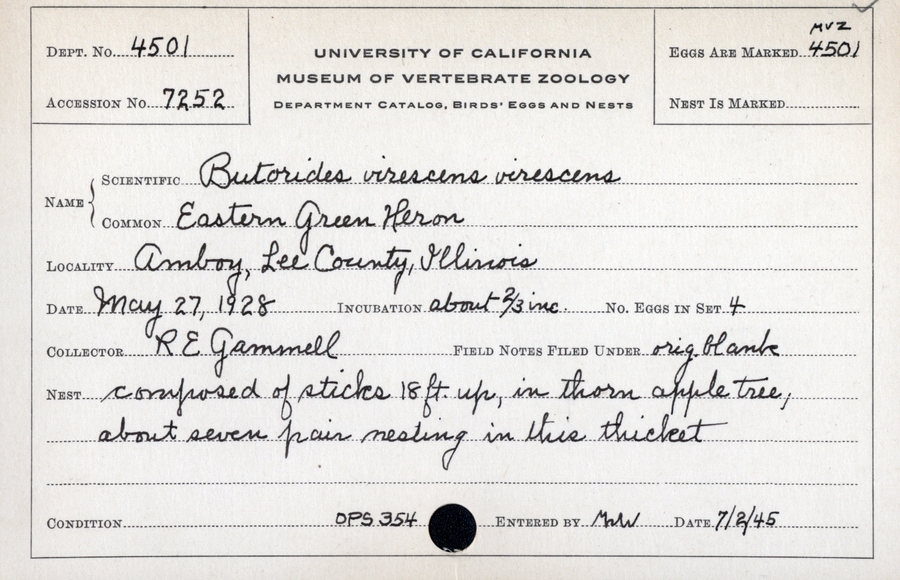 DEPT. NO. 4501
ACCESSION NO. 7252
UNIVERSITY OF CALIFORNIA
MUSEUM OF VERTEBRATE ZOOLOGY
DEPARTMENT CATALOG, BIRDS' EGGS AND NESTS
MVZ
EGGS ARE MARKED 4501
NEST IS MARKED
NAME
SCIENTIFIC Butorides virescens virescens
COMMON Eastern Green Heron
LOCALITY Amboy, Lee County, Illinois
DATE May 27, 1928 INCUBATION about 2/3 inc. NO. EGGS IN SET 4
COLLECTOR R E Gammell FIELD NOTES FILED UNDER orig. blank
NEST composed of sticks 18 ft. up, in thorn apple tree,
about seven pair nesting in this thicket
CONDITION OPS 354 ENTERED BY DATE 7/2/45